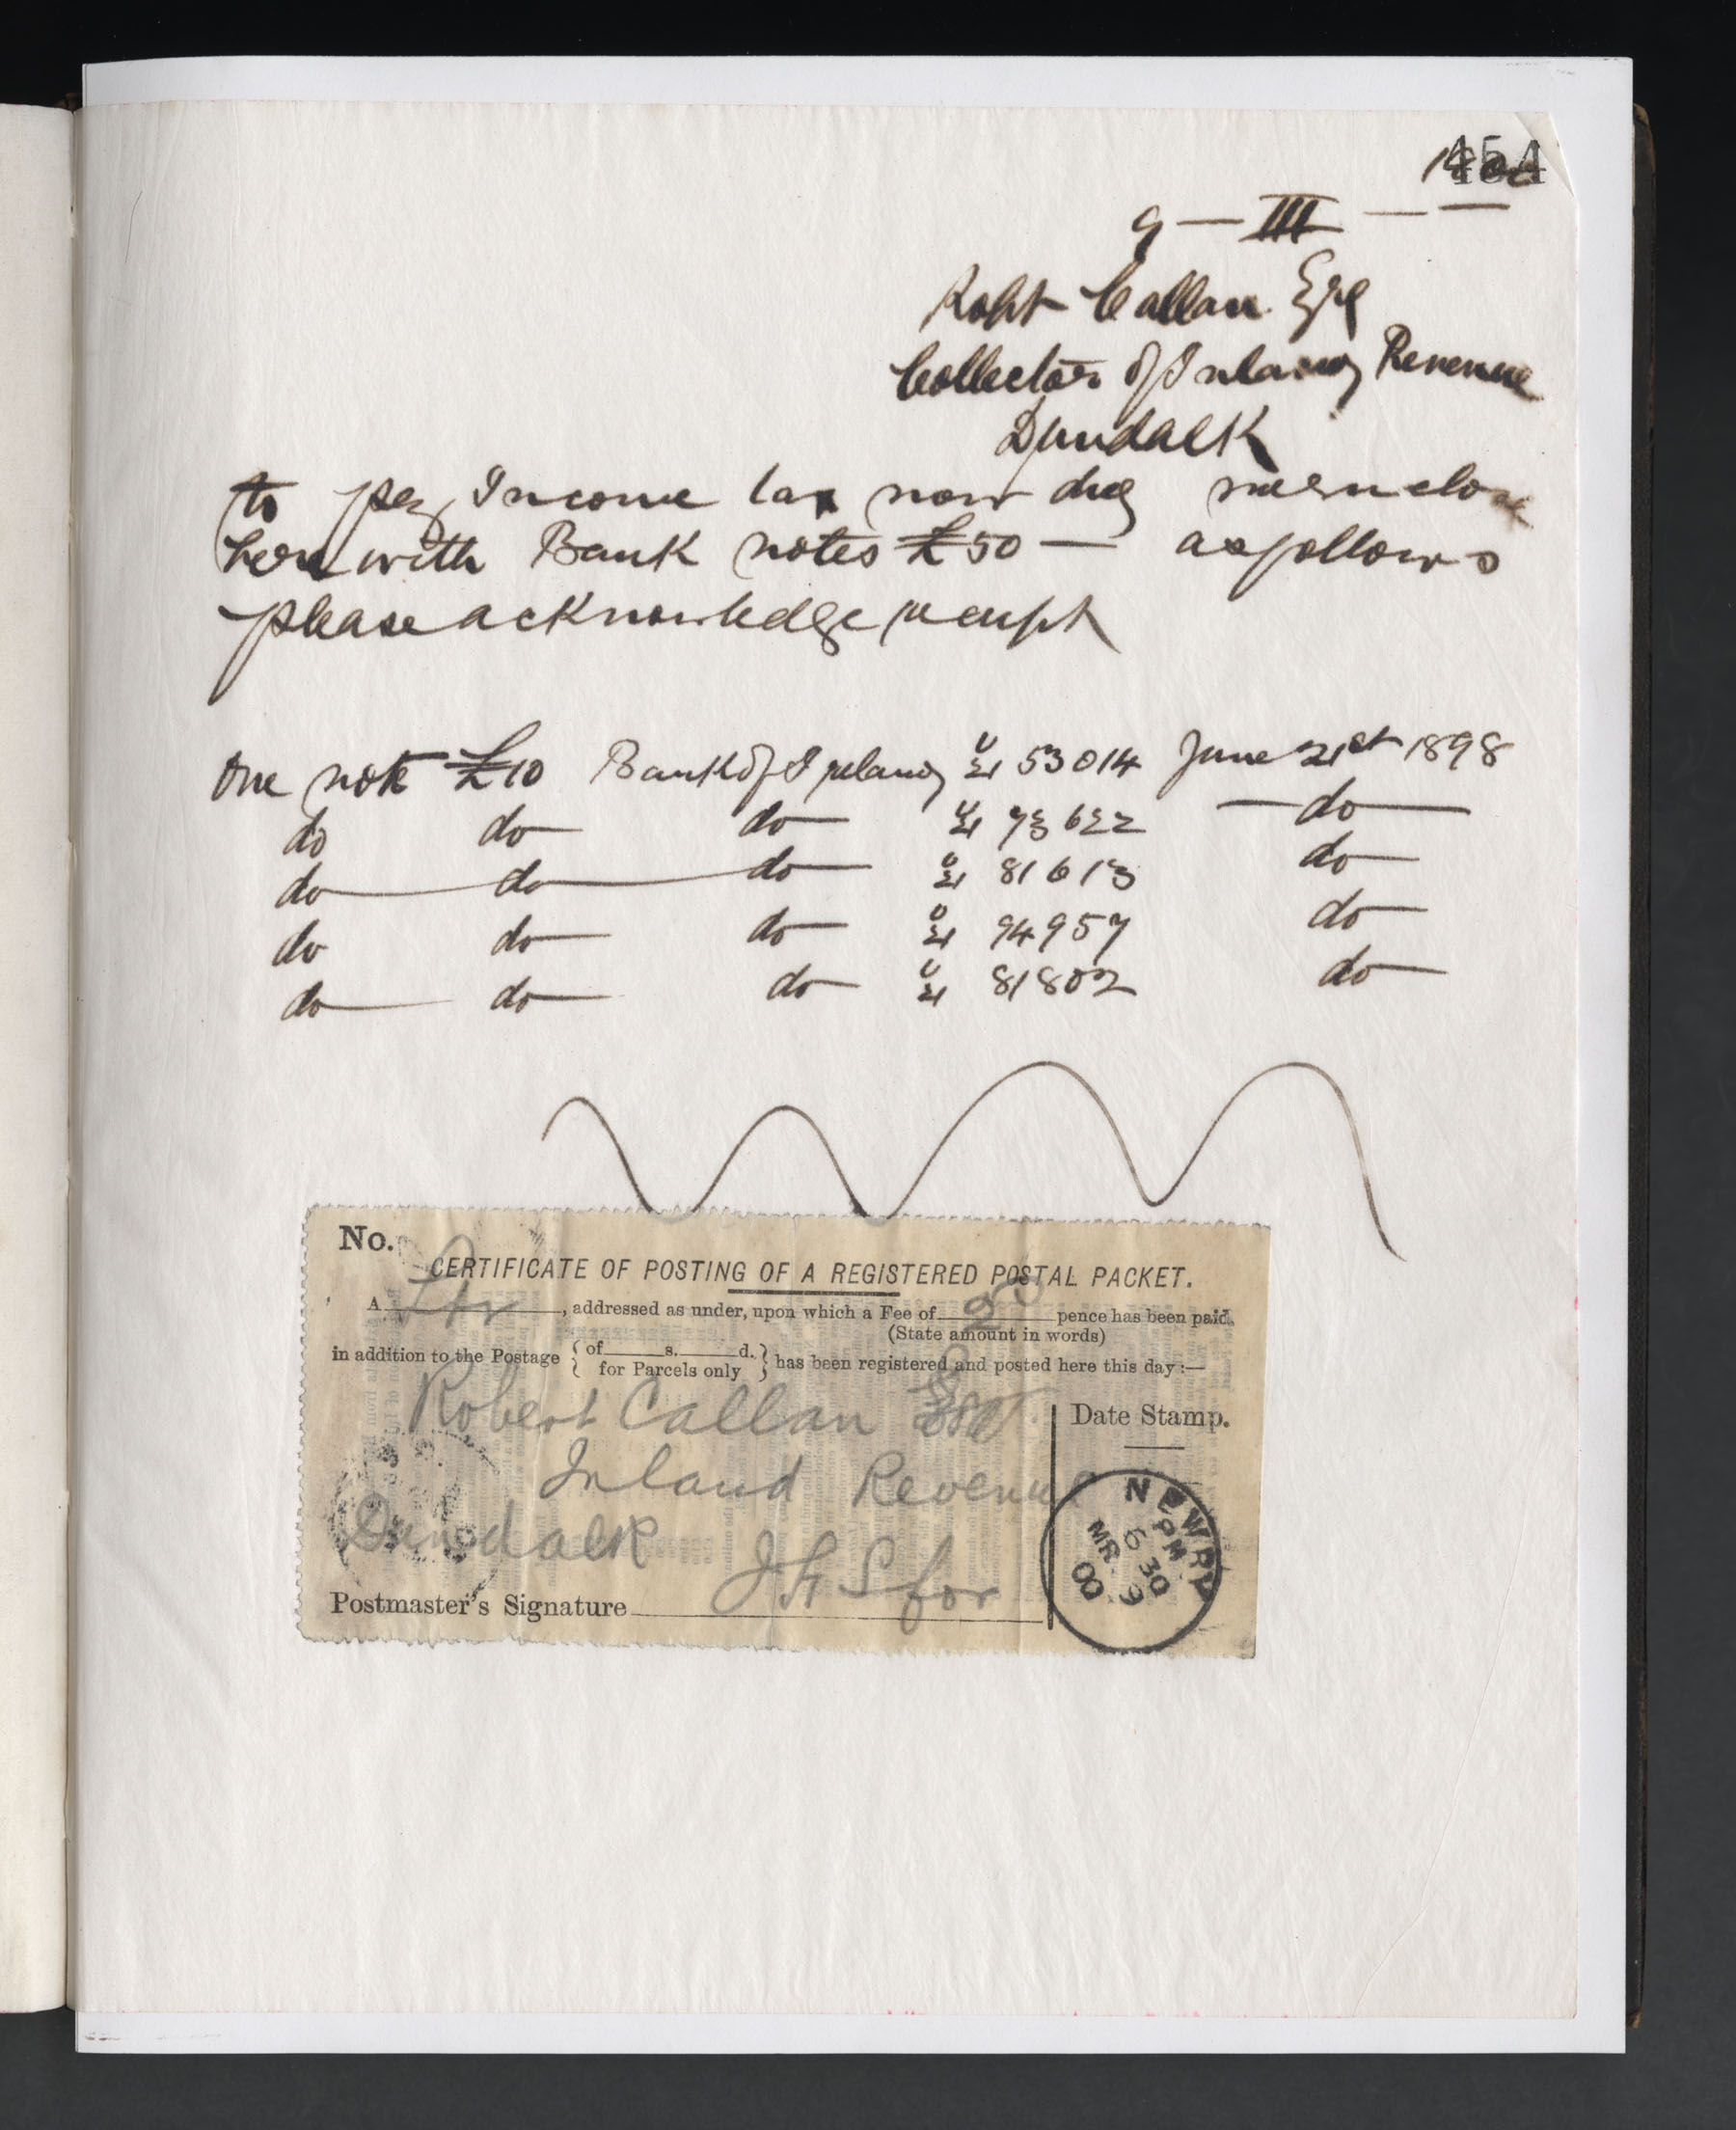 454
9 — III — —
Robt Callan Esq
Collector of Inland Revenue
Dundalk
to pay Income tax now due we enclose
herewith Bank notes £50 — as follows
please acknowledge receipt
One note £10 Bank of Ireland 53014 June 21st 1898
do do do 73622 do
do do do 81613 do
do do do 94957 do
do do do 81802 do
No.
CERTIFICATE OF POSTING OF A REGISTERED POSTAL PACKET.
A Ltr, addressed as under, upon which a Fee of 2D pence has been paid
(State amount in words)
in addition to the Postage { of s. d. for Parcels only } has been registered and posted here this day:—
Robert Callan Esq
Date Stamp.
Inland Revenue
Dundalk
NEWRY
6 30 PM
MR 9
00
Postmaster's Signature for